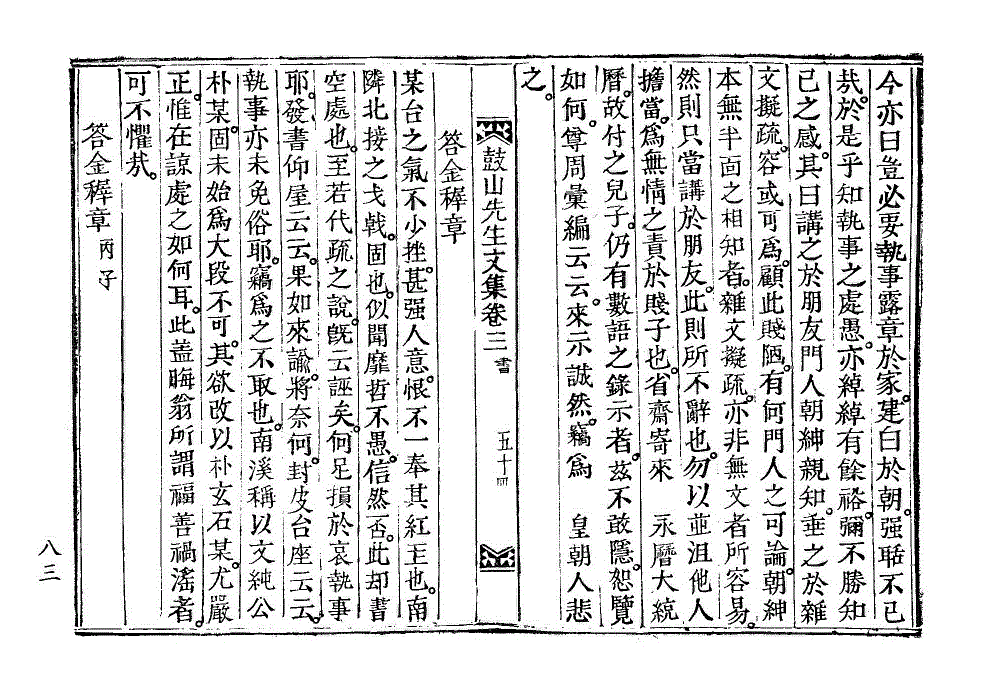 今亦曰豈必要執事露章於家建白於朝。强聒不已
㢤。於是乎知執事之處愚。亦綽綽有餘裕。彌不勝知
己之感。其曰講之於朋友門人朝紳親知。垂之於雜
文擬疏。容或可爲。顧此賤陋。有何門人之可論。朝紳
本無半面之相知者。雜文擬疏。亦非無文者所容易。
然則只當講於朋友。此則所不辭也。勿以並沮他人
擔當。爲無情之責於賤子也。省齋寄來 永曆大統
曆。故付之兒子。仍有數語之錄示者。玆不敢隱。恕覽
如何。尊周彙編云云。來示誠然。竊爲 皇朝人悲
之。
鼓山先生文集卷三 書 五十四
答金穉章
某台之氣不少挫。甚强人意。恨不一奉其紅玉也。南
隣北接之戈戟。固也。似聞靡哲不愚。信然否。此却書
空處也。至若代疏之說。旣云誣矣。何足損於哀執事
耶。發書仰屋云云。果如來諭。將奈何。封皮台座云云。
執事亦未免俗耶。竊爲之不取也。南溪稱以文純公
朴某。固未始爲大段不可。其欲改以朴玄石某。尤嚴
正。惟在諒處之如何耳。此盖晦翁所謂福善禍滛者。
可不懼㢤。
答金穉章 丙子
八三